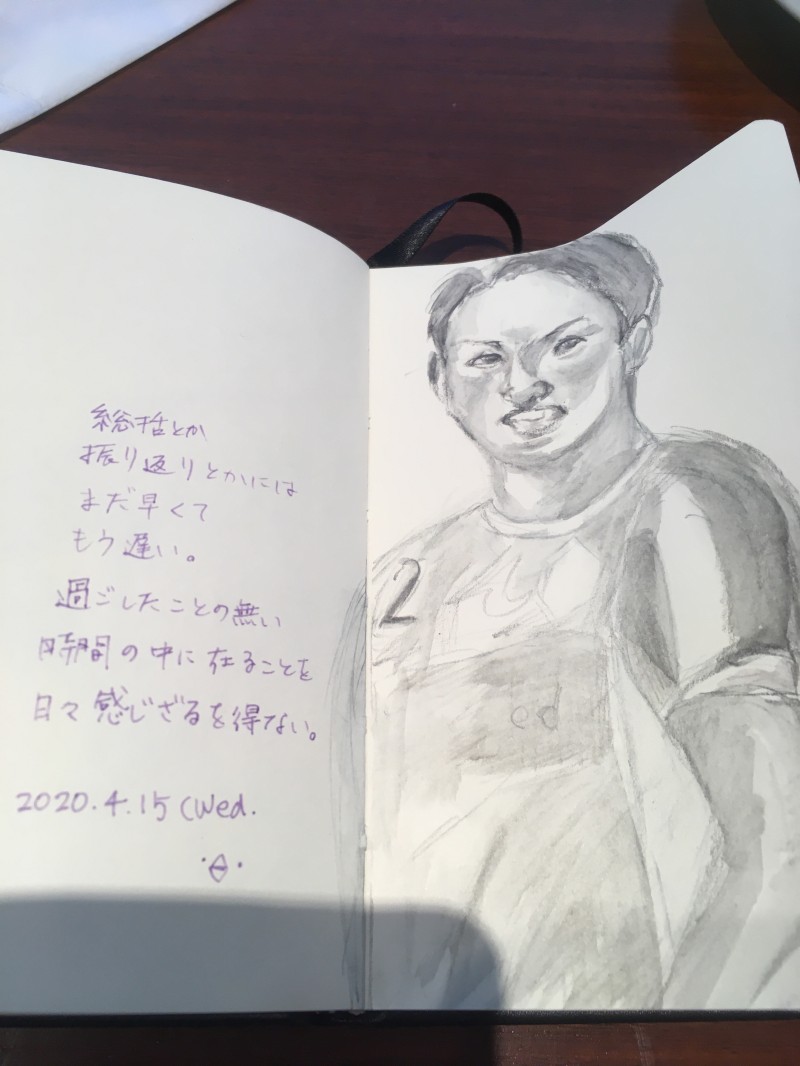 総括とか
振り返りとかには
まだ早くて
もう遅い。
過ごしたことの無い
時間の中に在ることを
日々感じざるを得ない。
2020.4.15 (Wed.
2
ed